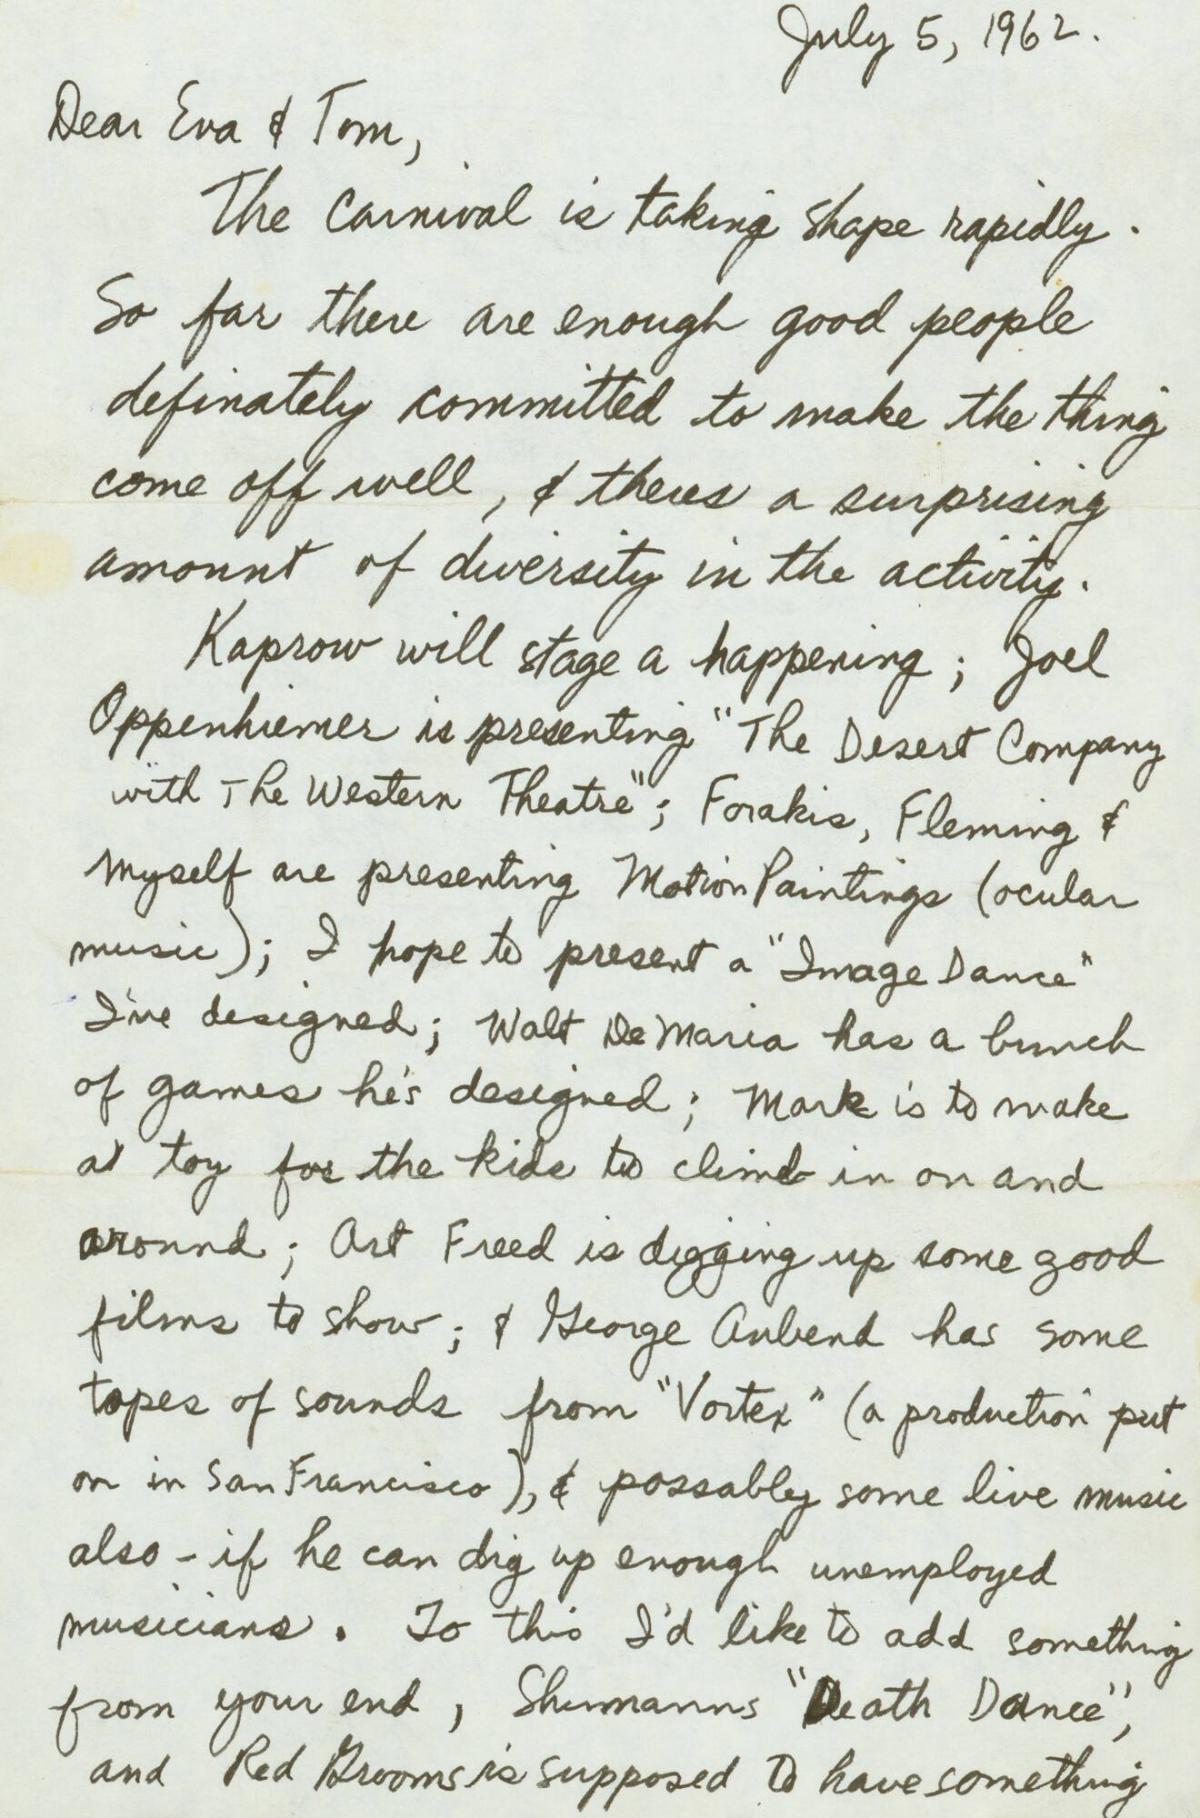 July 5, 1962.
Dear Eva & Tom,
The Carnival is taking shape rapidly.
So far there are enough good people
definately committed to make the thing
come off well, & theres a surprising
amount of diversity in the activity.
Kaprow will stage a happening; Joel
Oppenhiemer is presenting "The Desert Company
with The Western Theatre"; Forakis, Fleming &
myself are presenting Motion Paintings (ocular
music); I hope to present a "Image Dance"
I've designed; Walt De Maria has a bunch
of games he's designed; Mark is to make
a toy for the kids to climb in on and
around; Art Freed is digging up some good
films to show; & George Aubend has some
tapes of sounds from "Vortex" (a production put
on in San Francisco), & possably some live music
also - if he can dig up enough unemployed
musicians. To this I'd like to add something
from your end, Shumanns "Death Dance",
and Red Grooms is supposed to have something